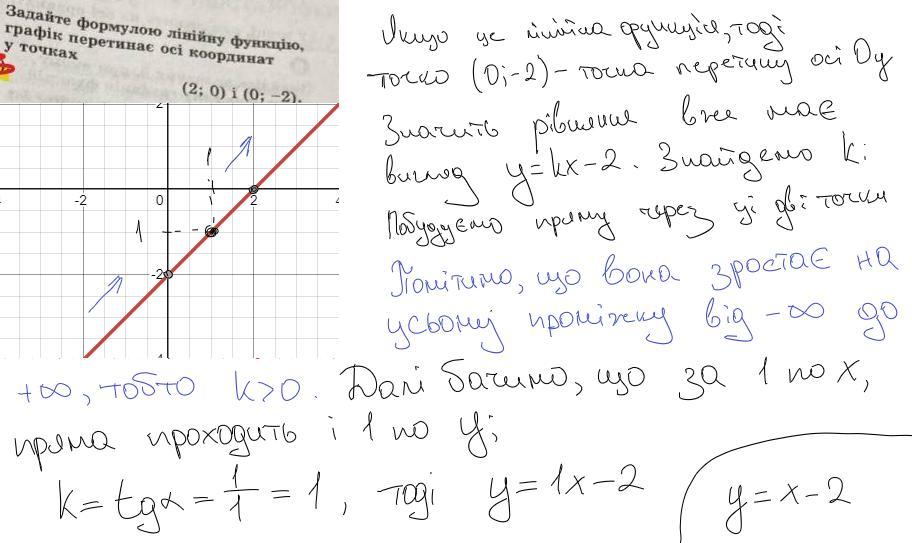 Задайте формулою лінійну функцію,
графік перетинає осі координат
у точках
(2; 0) і (0; −2).
2
-2
0
2
1
1
-2
Якщо це лінійна функція, тоді
точко (0;-2) - точка перетину осі Oy
Значить рівняння вже має
вигляд y=kx-2. Знайдемо k:
Побудуємо пряму через ці дві точки
Помітимо, що вона зростає на
усьому проміжку від -∞ до
+∞, тобто k>0. Далі бачимо, що за 1 по x,
пряма проходить і 1 по y;
k = tgα = 1/1 = 1, тоді y=1x-2
y=x-2